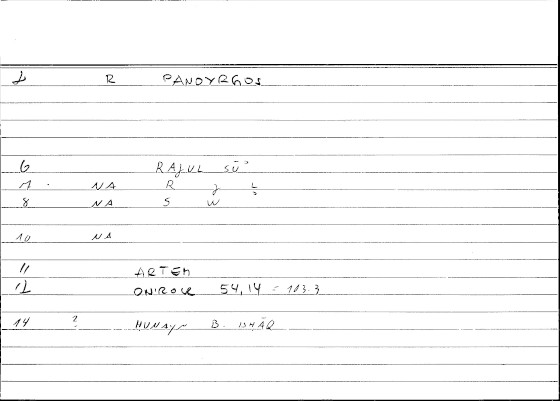 1 R PANOYRGOS
6 RAJUL SŪ'
7 NA R J L
8 NA S W
10 NA
11 ARTEM
12 ONIROCR 54,14 = 103.3
14 ? HUNAYN B. ISHĀQ